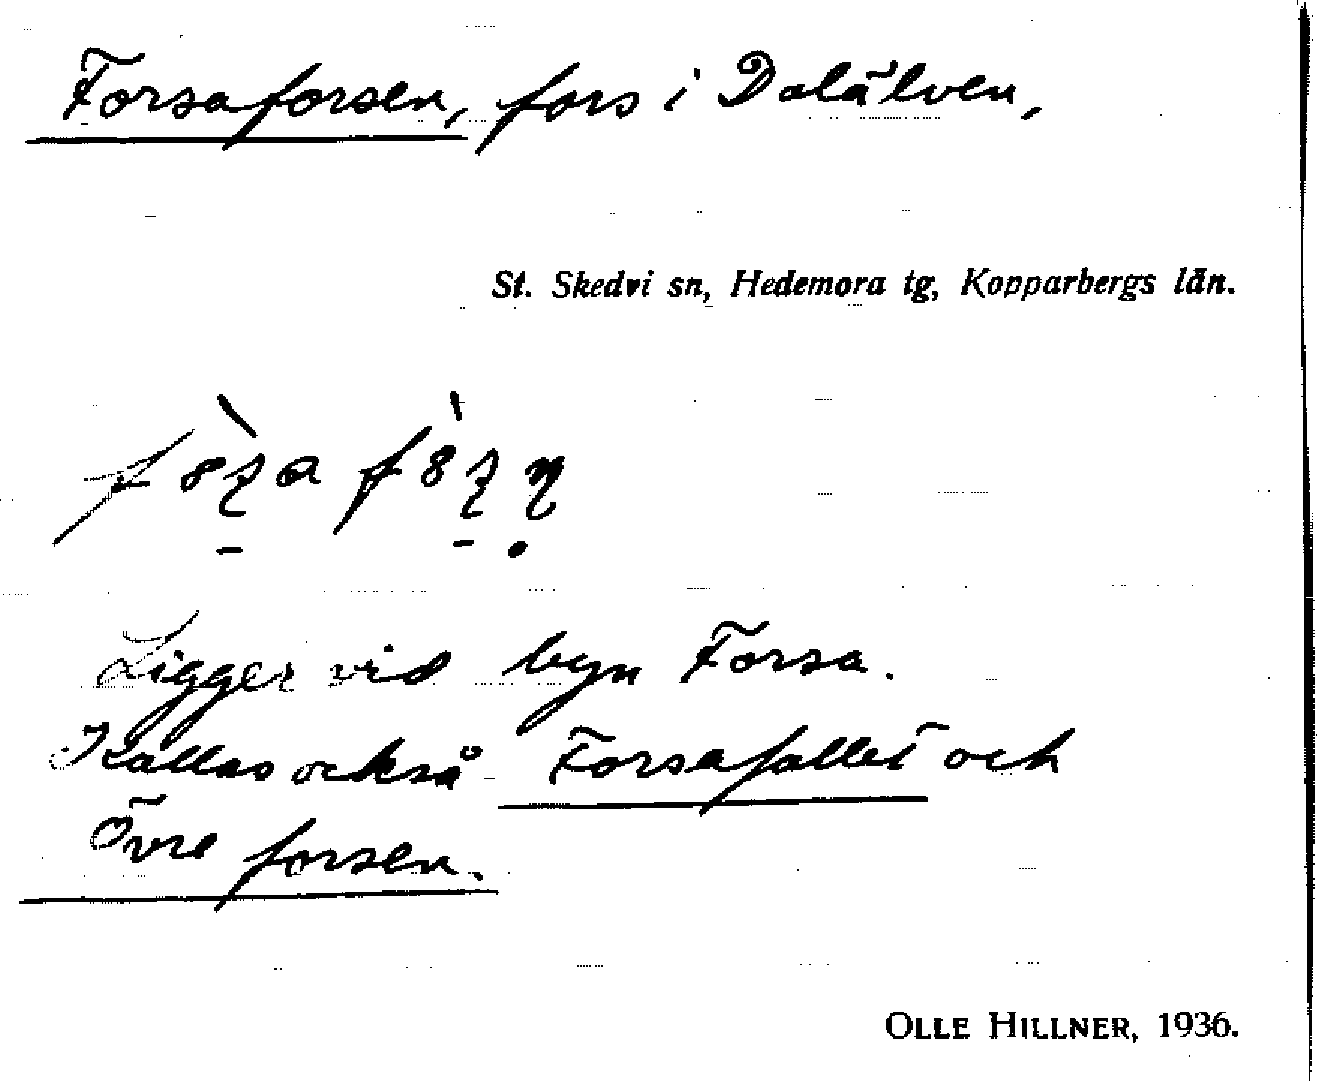 Forsaforsen, fors i Dalälven,
St. Skedvi sn, Hedemora tg, Kopparbergs län.
Ligger vid byn Forsa.
Kallas också Forsafallet och
Övre forsen.
OLLE HILLNER, 1936.